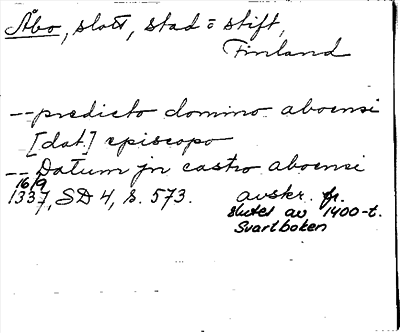 Åbo, slott, stad o stift,
Finland
-- predicto domino aboensi
[dat.] episcopo
-- Datum jn castro aboensi
16/9
1337, SD 4, s. 573. avskr. fr.
slutet av 1400-t.
Svartboken